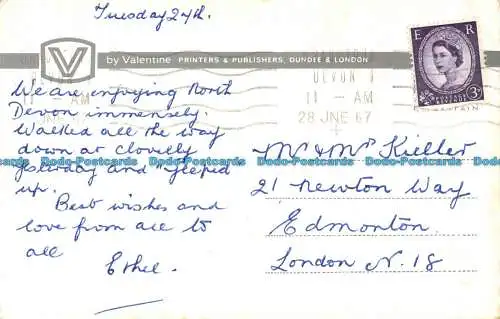 Tuesday 27th.
V by Valentine PRINTERS & PUBLISHERS, DUNDEE & LONDON
DEVON
11 - AM
28 JNE 67
E R
3D
We are enjoying North
Devon immensely.
Walked all the way
down at clovelly
yesterday and "jeeped
up.
Best wishes and
love from all to
all
Ethel.
Mr & Mrs Kieller
21 Newton Way
Edmonton.
London N. 18
Dodo-Postcards Dodo-Postcards Dodo-Postcards Dodo-Postcards Dodo-Postcards